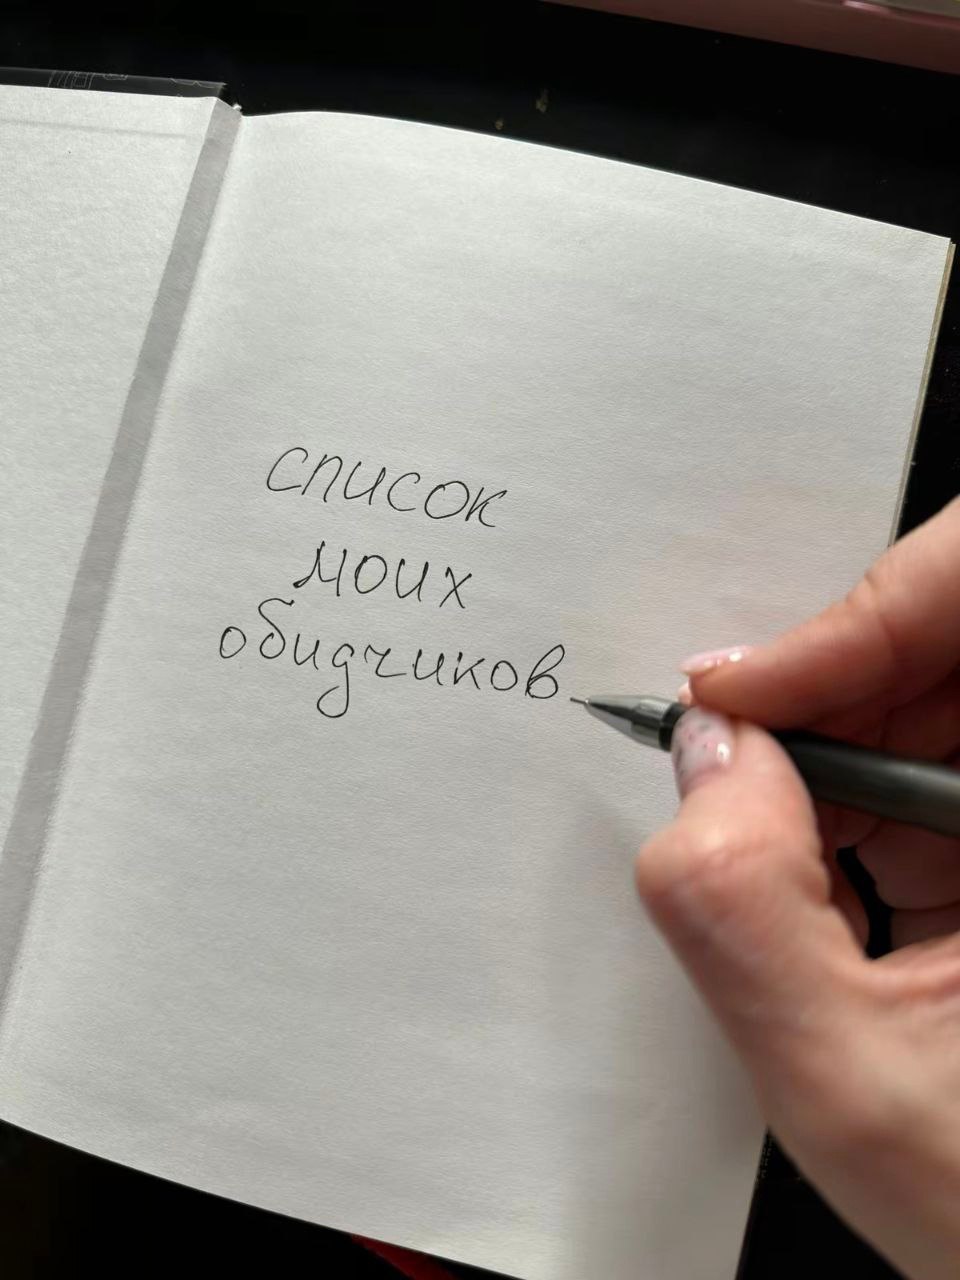 список
моих
обидчиков